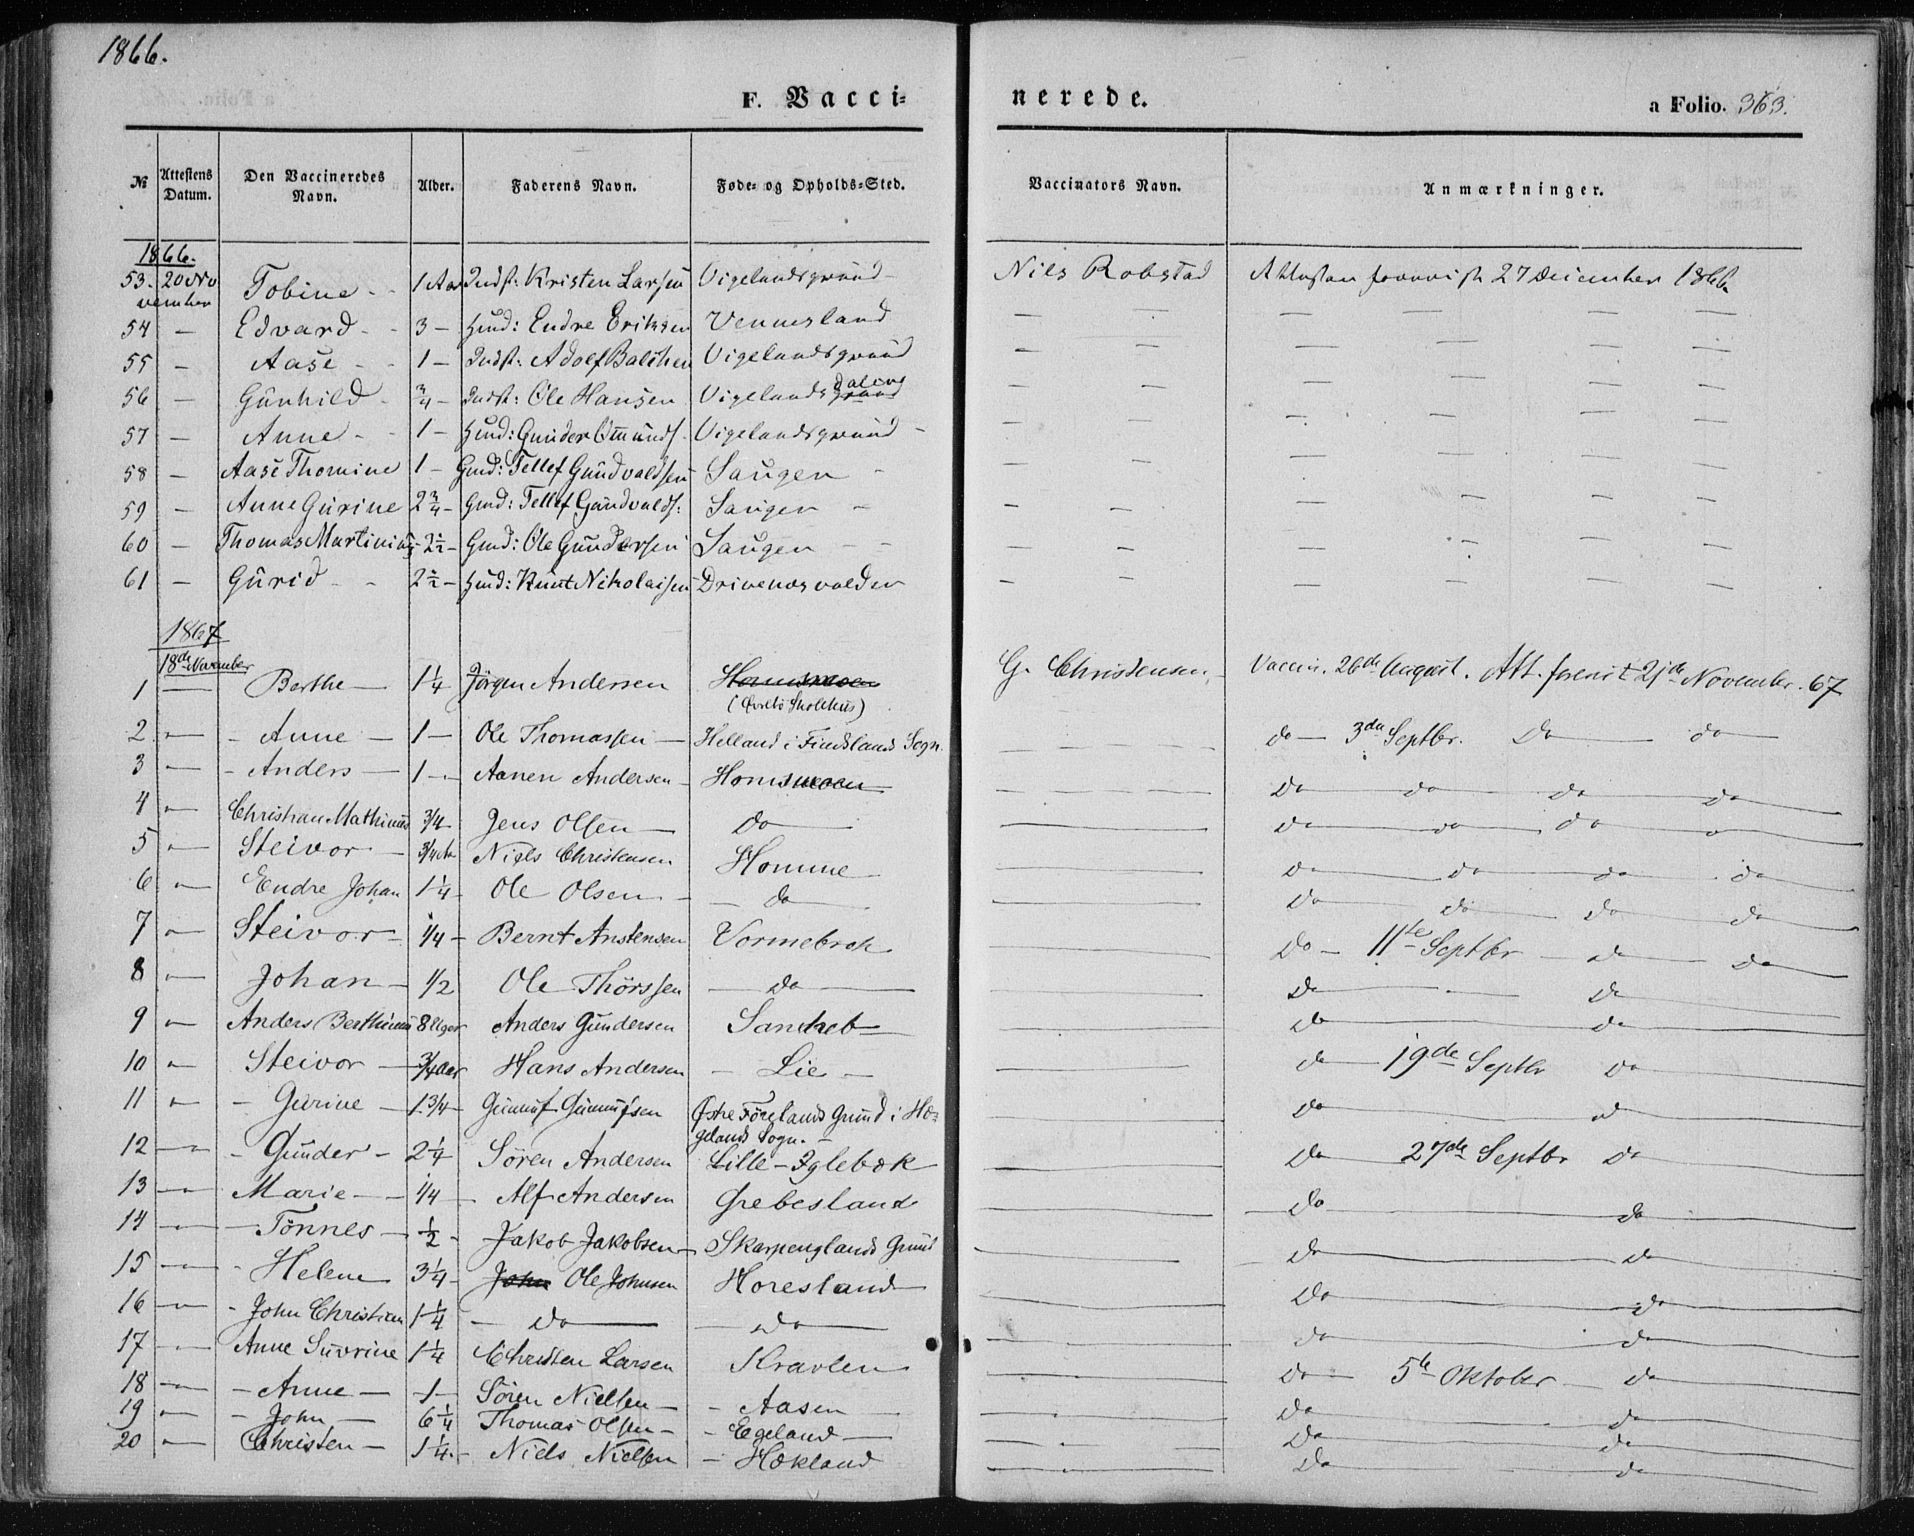 1866.
F. Vacci= nerede. a Folio. 363.
№ Attestens Datum. Den Vaccineredes Navn. Alder. Faderens Navn. Føde- og Opholds-Sted. Vaccinators Navn. Anmærkninger.
1866.
53. 20 November Tobine 1 Aar Indst: Kristen Larsen Vigelandsgrund Nils Robstad Attesten forevist 27 December 1866.
54 — Edvard 3 — Huusm: Endre Eriksen Vennesland — — — — —
55 — Aase 1 — Indst: Adolf Balchen Vigelandsgrund — — — — —
56 — Gunhild ¾ — Indst: Ole Hansen Vigelands — — — — —
57 — Anne 1 — Gunder Omunds. Vigelandsgrund — — — — —
58 — Aase Thomine 1 — Gmd: Tellef Gundvaldsen Saugen — — — — —
59 — Anne Gurine 2¾ — Gmd: Tellef Gundvalds: Saugen — — — — —
60 — Thomas Martinius 2½ — Gmd: Ole Gundersen Saugen — — — — —
61 — Gurid 2½ — Knut Nikolaisen Drivenes — — — — —
1867
18de November
1 — Berthe — 1¼ Jörgen Andersen Homsmoen G. Christensen Vaccin. 26de August. Att. forevist 21de November. 67
(Øvlebö Skolehus)
2. — Anne — 1 — Ole Thomassen — Helland i Findslands Sogn. — do — 3die Septbr. Do do
3 — Anders — 1 — Aanen Andersen — Homsmoen — do do do do
4 — Christian Mathinus 3/4 Jens Olsen — Do — do do do
5 — Steivor — 3/4 Aar Niels Christensen Homme — do do do do
6 — Endre Johan 1¼ Ole Olsen — do — do do do do
7 — Steivor 1/4 — Bernt Anstensen Vormebrok — Do — 11te Septbr — do do
8 — Johan — 1/2 Ole Thörssen — do — do — do
9 — Anders Berthinius 8 Uger Anders Gundersen Sandreb — do — do
10 — Steivor — 3/4 Aar Hans Andersen — Lie — do — 19de Septbr do
11 — Gurine — 1 3/4 Gunnuf Gunnufsen Østre Föreglands Grund i Hæ= — do — do
gelands Sogn. —
12 — Gunder — 2¼ Sören Andersen Lille-Iglebæk — do 27de Septbr do
13 — Marie — 1/4 — Alf Andersen Grebesland — do — do
14 — Tönnes — ½ — Jakob Jakobsen — Skarpenglands Grund — do — do
15 — Helene 3¼ — John Ole Johnsen Horesland — do — do
16 — John Christian 1¼ — Do — Do — do — do
17 — Anne Suvrine 1¼ Christen Larsen Kravlen — do — 5te Oktober — do
18 — Anne — 1 — Sören Nielsen — Aasen — do — do
19 — John — 6¼ Thomas Olsen — Egeland — do — do
20 — Christen — 1¼. — Niels Nielsen — Hækland — do — do